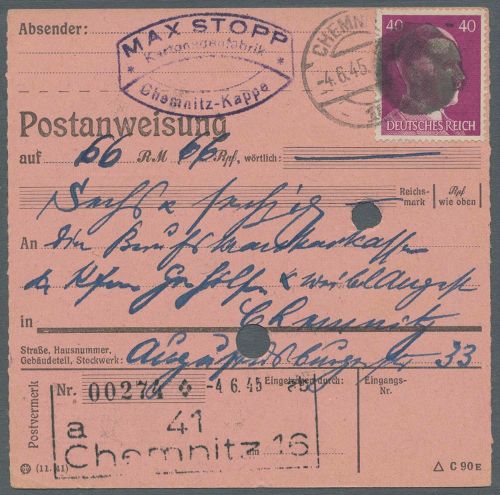 Absender:
MAX STOPP
Kartonagenfabrik
Chemnitz-Kappe
CHEMN
-4.6.45
40 40
DEUTSCHES REICH
Postanweisung
auf 66 RM 66 Rpf, wörtlich:
Reichs-
mark
Rpf
wie oben
Sechs & sechzig
An die Berufskrankenkasse
d. Kfm Gehilfen & weibl Angest
in Chemnitz
Straße, Hausnummer,
Gebäudeteil, Stockwerk: Augustusburger str 33
Postvermerk
Nr. 00274 -4 6.45
Eingetragen durch:
Eingangs-
Nr.
a 41
Chemnitz 16
(11.41)
△ C 90 E